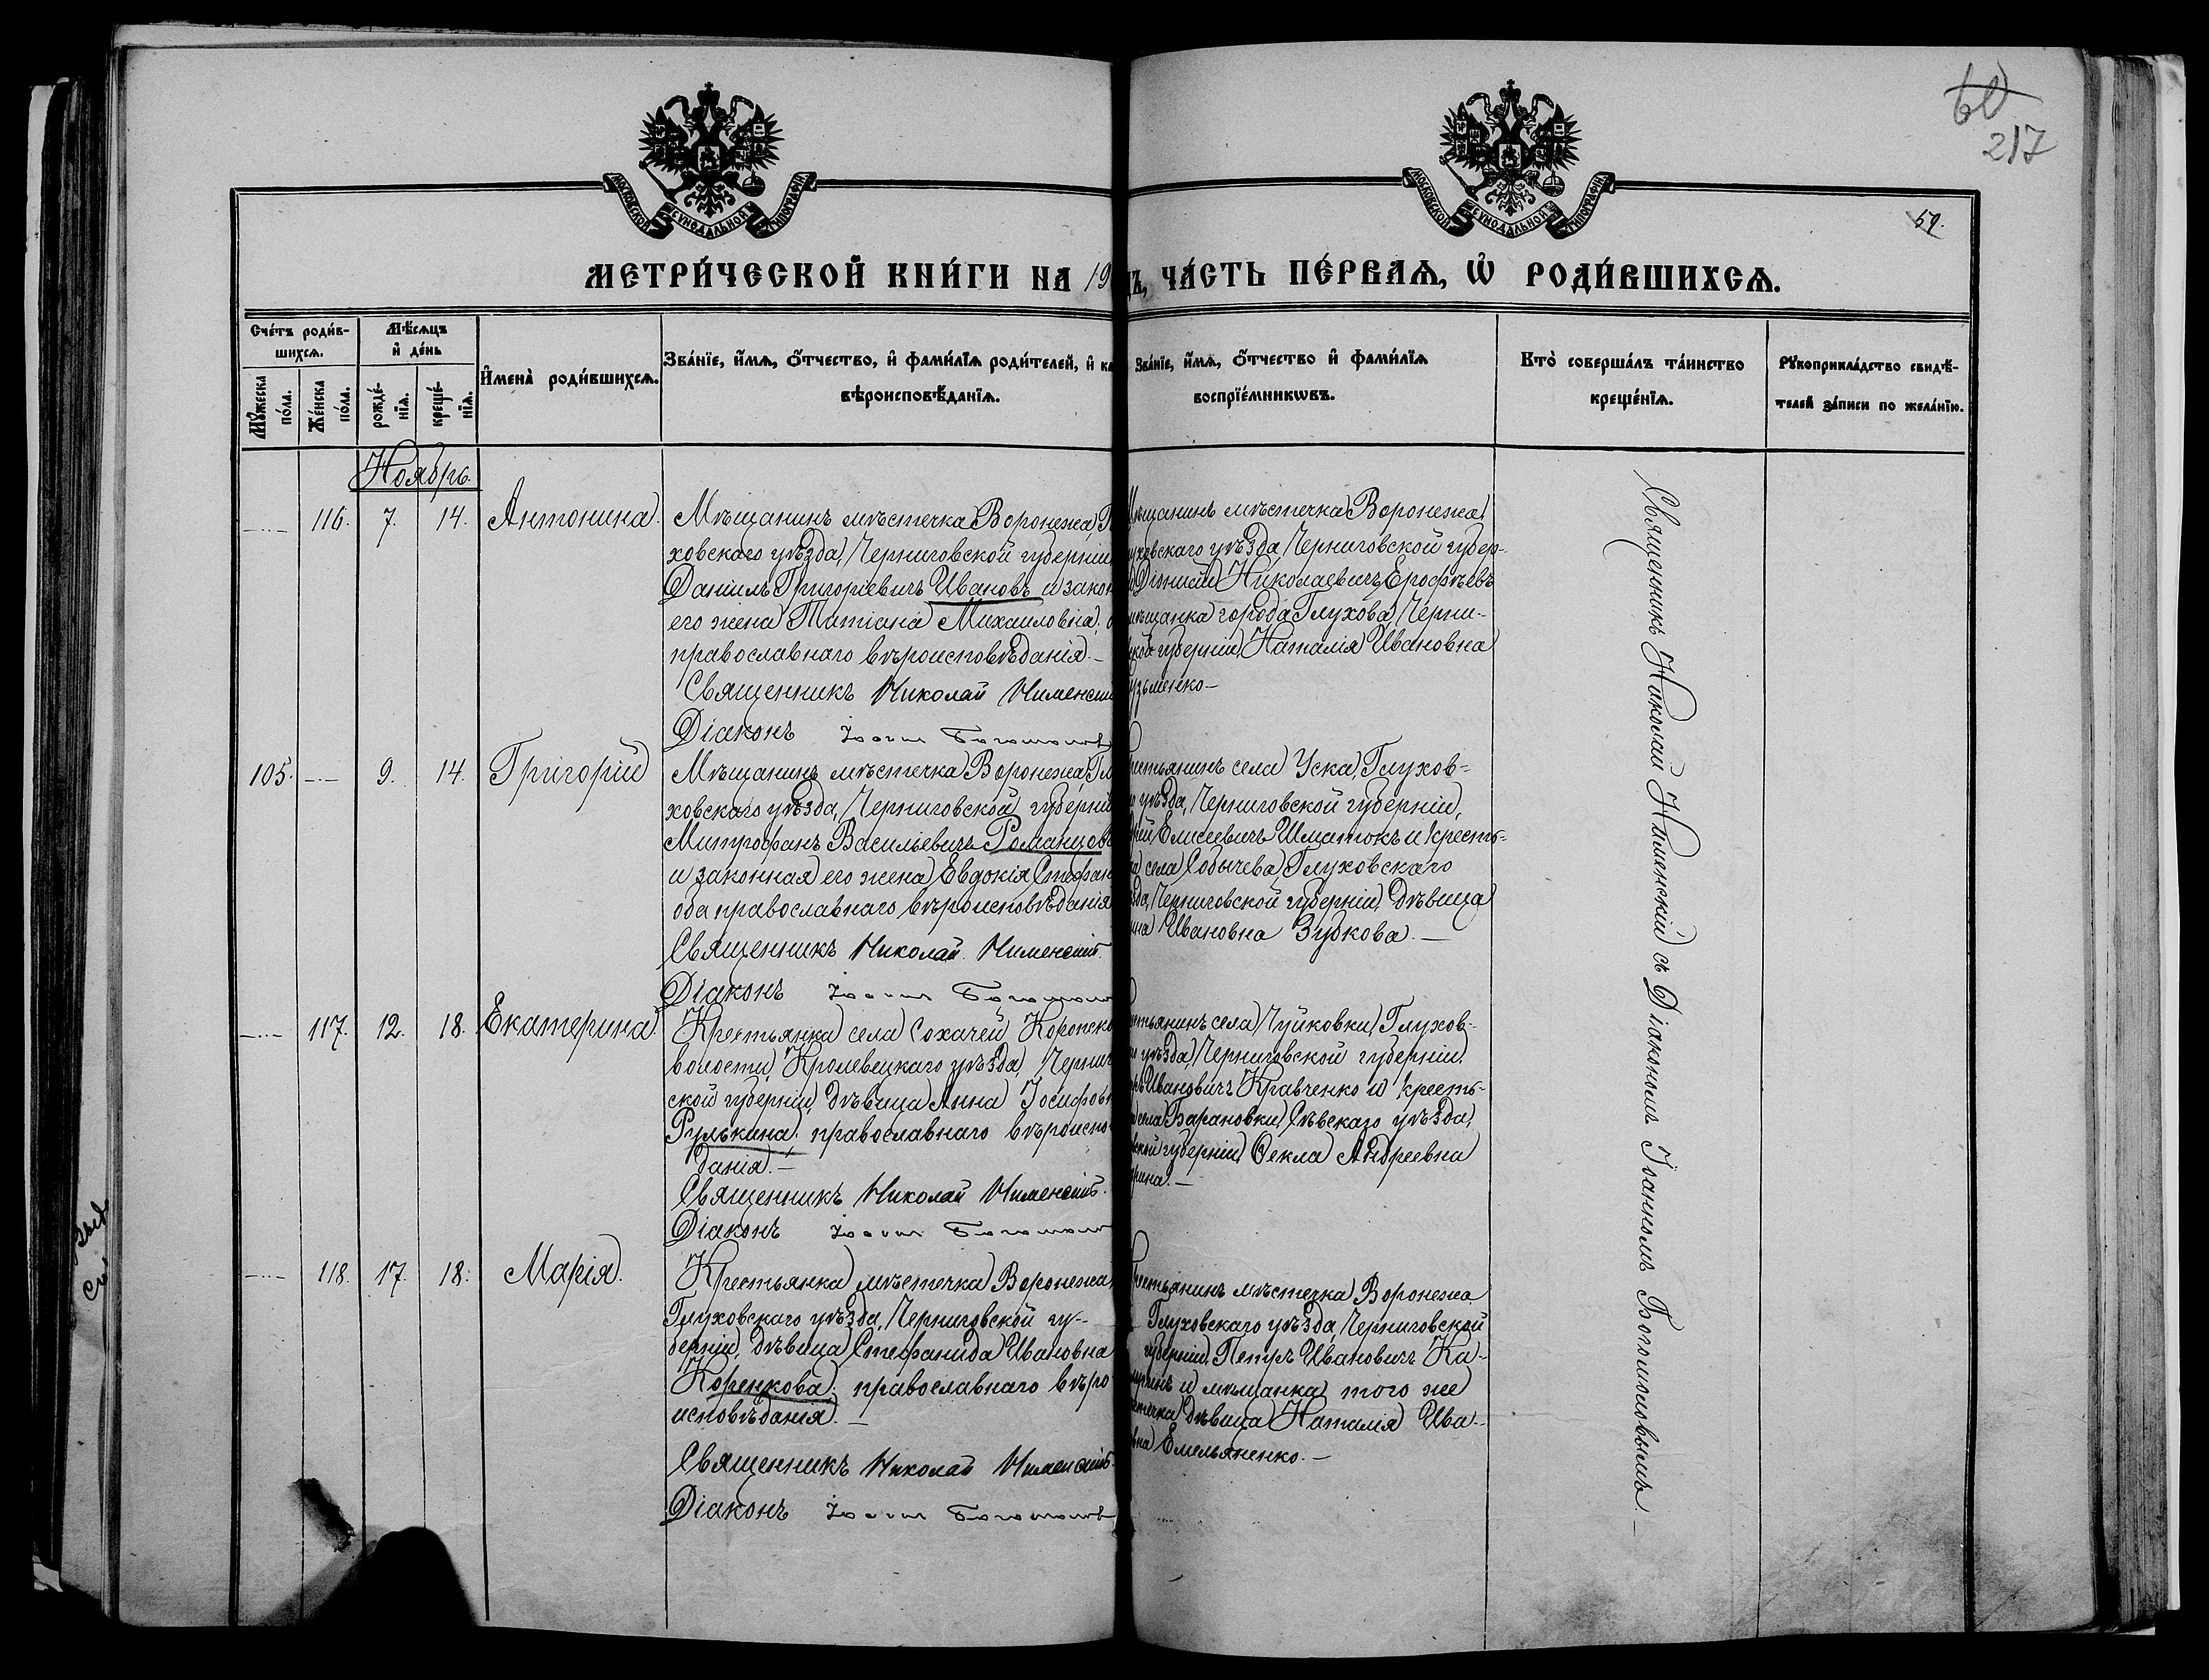 60
217
59.
МОСКОВСКОЙ СѴНОДАЛЬНОЙ ТИПОГРАФІИ
МОСКОВСКОЙ СѴНОДАЛЬНОЙ ТИПОГРАФІИ
МЕТРИ́ЧЕСКОЙ КНИ́ГИ НА 19
ЧА́СТЬ ПЕ́РВАѦ, Ѡ҆ РОДИ́ВШИХСѦ.
Сче́тъ роди́в-
шихсѧ.
Мѣ́сѧцъ
и҆ де́нь
Мꙋ́жеска
по́ла.
Же́нска
по́ла.
рожде́-
нїѧ.
креще́-
нїѧ.
И҆мена̀ роди́вшихсѧ.
Зва́нїе, и҆́мѧ, ѻ҆́тчество, и҆ фами́лїѧ роди́телей, и҆
вѣроисповѣ́данїѧ.
Зва́нїе, и҆́мѧ, ѻ҆́тчество и҆ фами́лїѧ
воспрїе́мникѡвъ.
Кто̀ соверша́лъ та́инство
креще́нїѧ.
Рꙋкоприкла́дство свидѣ́-
телей за́писи по жела́нїю.
Ноябрь.
116. 7. 14. Антонина.
Мѣщанинъ мѣстечка Воронежа,
ховскаго уѣзда, Черниговской губерніи
Даніилъ Григоріевичъ Ивановъ и закон
его жена Татіана Михаиловна,
православнаго вѣроисповѣданія. –
Священникъ Николай Нименскій
Діаконъ Іоаннъ Богомоловъ
мѣщанинъ мѣстечка Воронежа
уховскаго уѣзда, Черниговской губер-
Діонисій Николаевичъ Ерофѣевъ
мѣщанка города Глухова, Черни-
ской губерніи, Наталія Ивановна
узьменко –
105. – 9. 14. Григорій
Мѣщанинъ мѣстечка Воронежа, Глу
ховскаго уѣзда, Черниговской губерніи
Митрофанъ Васильевичъ Романцовъ
и законная его жена Евдокія Стефан
оба православнаго вѣроисповѣданія
Священникъ Николай Нименскій.
Діаконъ Іоаннъ Богомолов
рестьянинъ села Уска, Глухов-
уѣзда, Черниговской губерніи,
Елисеевичъ Шматокъ и кресть-
села Собычева, Глуховскаго
зда, Черниговской губерніи, дѣвица
ина Ивановна Зубкова. –
117. 12. 18. Екатерина.
Крестьянка села Сохачей Коропско
волости, Кролевецкаго уѣзда, Черниг
ской губерніи, дѣвица Анна Іосифовн
Рулькина, православнаго вѣроиспо
данія. –
Священникъ Николай Нименскій.
Діаконъ Іоаннъ Богомолов
стьянинъ села Чуйковки, Глухов-
уѣзда, Черниговской губерніи,
Ивановичъ Кравченко и кресть-
села Барановки, Сѣвскаго уѣзда,
ской губерніи, Ѳекла Андреевна
рина. –
118. 17. 18. Марія.
Крестьянка мѣстечка Воронежа,
Глуховскаго уѣзда, Черниговской гу-
берніи, дѣвица Стефанида Ивановна
Коренкова, православнаго вѣро
исповѣданія. –
Священникъ Николай Нименскій.
Діаконъ Іоаннъ Богомоловъ
рестьянинъ мѣстечка Воронежа
Глуховскаго уѣзда, Черниговской
губерніи, Петръ Ивановичъ Ка-
и мѣщанка того же
стечка дѣвица Наталія Ива-
вна Емельяненко. –
Священникъ Николай Нименскій съ Діакономъ Іоанномъ Богомоловымъ. –